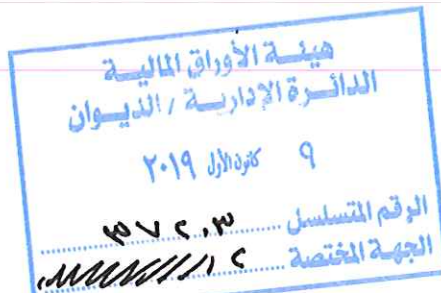 هيئة الأوراق المالية
الدائرة الإدارية / الديوان
٩ كانون الأول ٢٠١٩
الرقم المتسلسل
الجهة المختصة